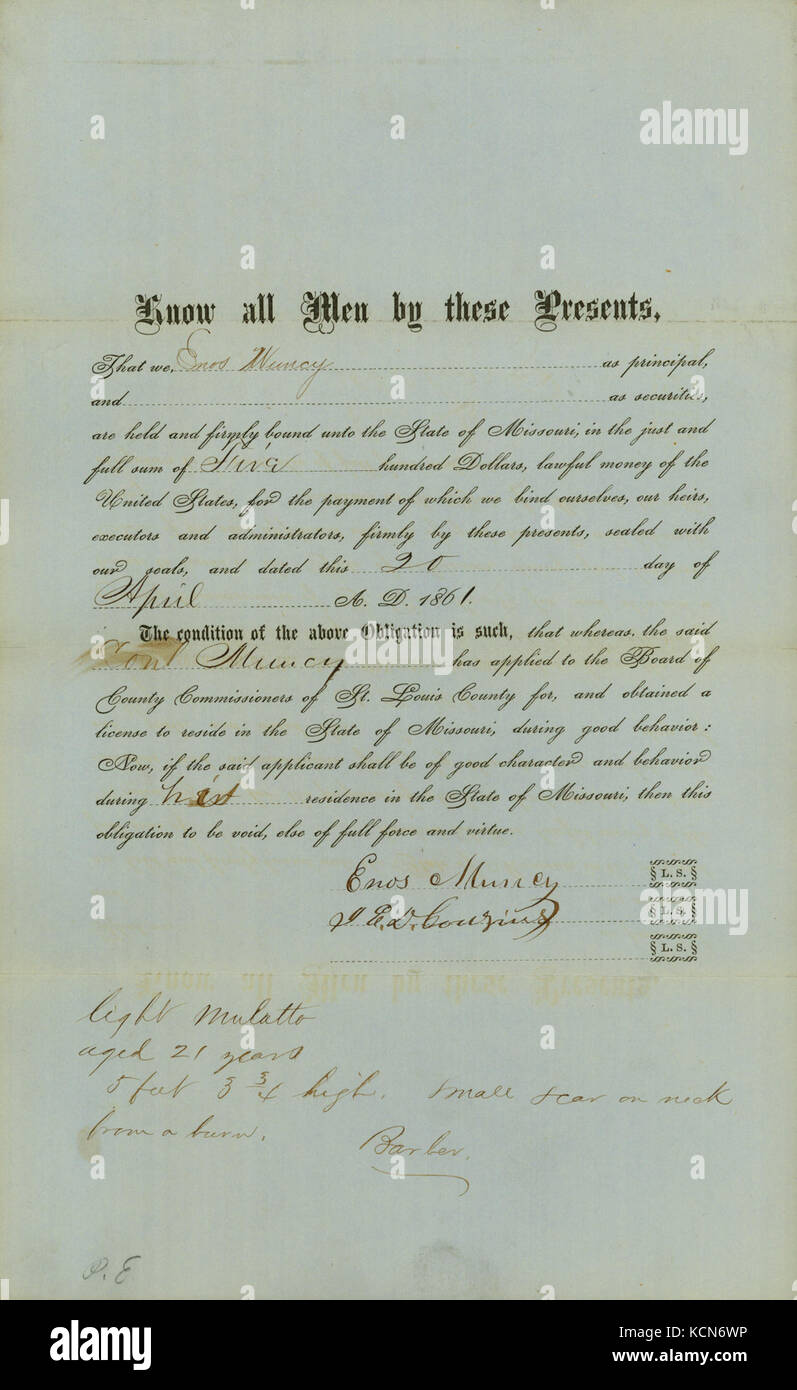 a
a
alamy
a
a
Know all Men by these Presents,
That we, Enos Muncy as principal,
and as securities,
are held and firmly bound unto the State of Missouri, in the just and
full sum of Five hundred Dollars, lawful money of the
United States, for the payment of which we bind ourselves, our heirs,
executors and administrators, firmly by these presents, sealed with
our seals, and dated this 20 day of
April A. D. 1861.
The condition of the above Obligation is such, that whereas, the said
Muncy has applied to the Board of
County Commissioners of St. Louis County for, and obtained a
license to reside in the State of Missouri, during good behavior:
Now, if the said applicant shall be of good character and behavior
during his residence in the State of Missouri, then this
obligation to be void, else of full force and virtue.
Enos Muncy § L. S. §
J. E. D. Couzins § L. S. §
§ L. S. §
light Mulatto
aged 21 years
5 feet 3 3/4 high. Small scar on neck
from a burn. Barber.
P. E
alamy
Image ID: KCN6WP
www.alamy.com